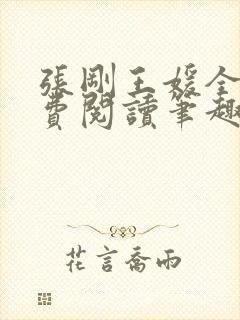 張剛王媛全
費閱讀筆趣
花言喬雨